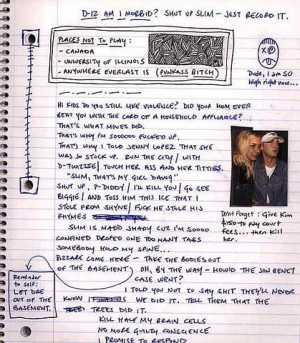 D-12 AM I MORBID? SHUT UP SLIM - JUST RECORD IT.
PLACES NOT TO PLAY:
- CANADA
- UNIVERSITY OF ILLINOIS
- ANYWHERE EVERLAST IS (PUNKASS BITCH)
Dude, I am SO
high right now...
HI KIDS DO YOU STILL LIKE VIOLENCE? DID YOUR MOM EVER
BEAT YOU WITH THE CORD OF A HOUSEHOLD APPLIANCE?
THAT'S WHAT MINES DID.
THAT'S WHY I'M SOOOOO FUCKED UP.
THAT'S WHY I TOLD JENNY LOPEZ THAT SHE
WAS SO STUCK UP. RUN THE CITY/ WITH
D-TWIZZLE/ TOUCH HER ASS AND HER TITTIES.
"SLIM, THAT'S MY GIRL DAWG"
SHUT UP, P-DIDDY / I'LL KILL YOU/ GO SEE
BIGGIE/ AND TOSS HIM THIS ICE THAT I
STOLE FROM SHYNE/ FUCK HE STOLE HIS
RHYMES
SLIM IS MADD SHADY CUZ I'M SOOOO
CONFINED DROPED ONE TOO MANY TABS
SOMEBODY HOLD MY SPINE...
BIZZARE COME HERE - TAKE THE BODIES OUT
OF THE BASEMENT. OH, BY THE WAY - HOW'D THE SON BENET
CASE WENT?
I TOLD YOU NOT TO SAY SHIT THEY'LL NEVER
KNOW WE DID IT. TELL THEM THAT THE
TREES DID IT.
KILL HALF MY BRAIN CELLS
NO MORE GUILTY CONSCIENCE
I PROMISE TO RESPOND
Don't Forget: Give Kim
$150 to pay court
fees... then kill
her.
Reminder
to self:
LET DRE
OUT OF THE
BASEMENT.